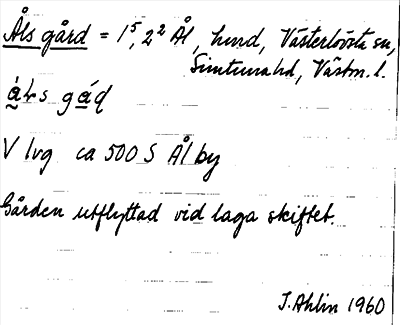 Åls gård = 1⁵, 2² Ål, hmd, Västerlövsta sn,
Simtuna hd, Västm. l.
V lvg ca 500 S Ål by
Gården utflyttad vid laga skiftet.
J. Ahlin 1960